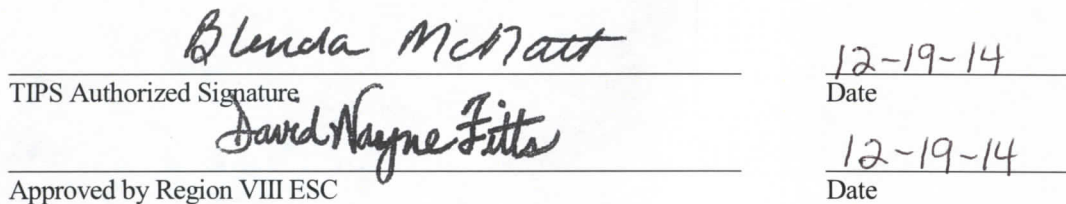 Blenda McNatt 12-19-14
TIPS Authorized Signature Date
David Wayne Fitts 12-19-14
Approved by Region VIII ESC Date